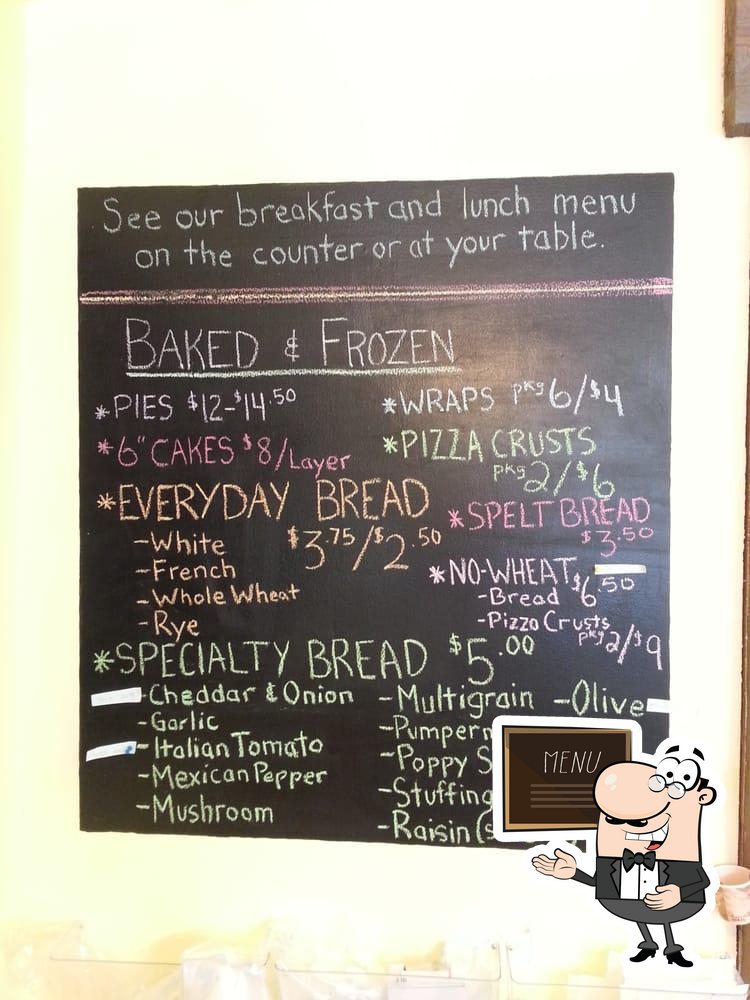 See our breakfast and lunch menu
on the counter or at your table.
BAKED & FROZEN
*PIES $12-$14.50
*6" CAKES $8/Layer
*EVERYDAY BREAD
-White $3.75/$2.50
-French
-Whole Wheat
-Rye
*WRAPS pkg 6/$4
*PIZZA CRUSTS
pkg 2/$6
*SPELT BREAD
$3.50
*NO-WHEAT
-Bread $6.50
-Pizza Crusts
pkg 2/$9
*SPECIALTY BREAD $5.00
-Cheddar & Onion
-Garlic
-Italian Tomato
-Mexican Pepper
-Mushroom
-Multigrain
-Poppy
-Stuffing
-Raisin
-Olive
MENU